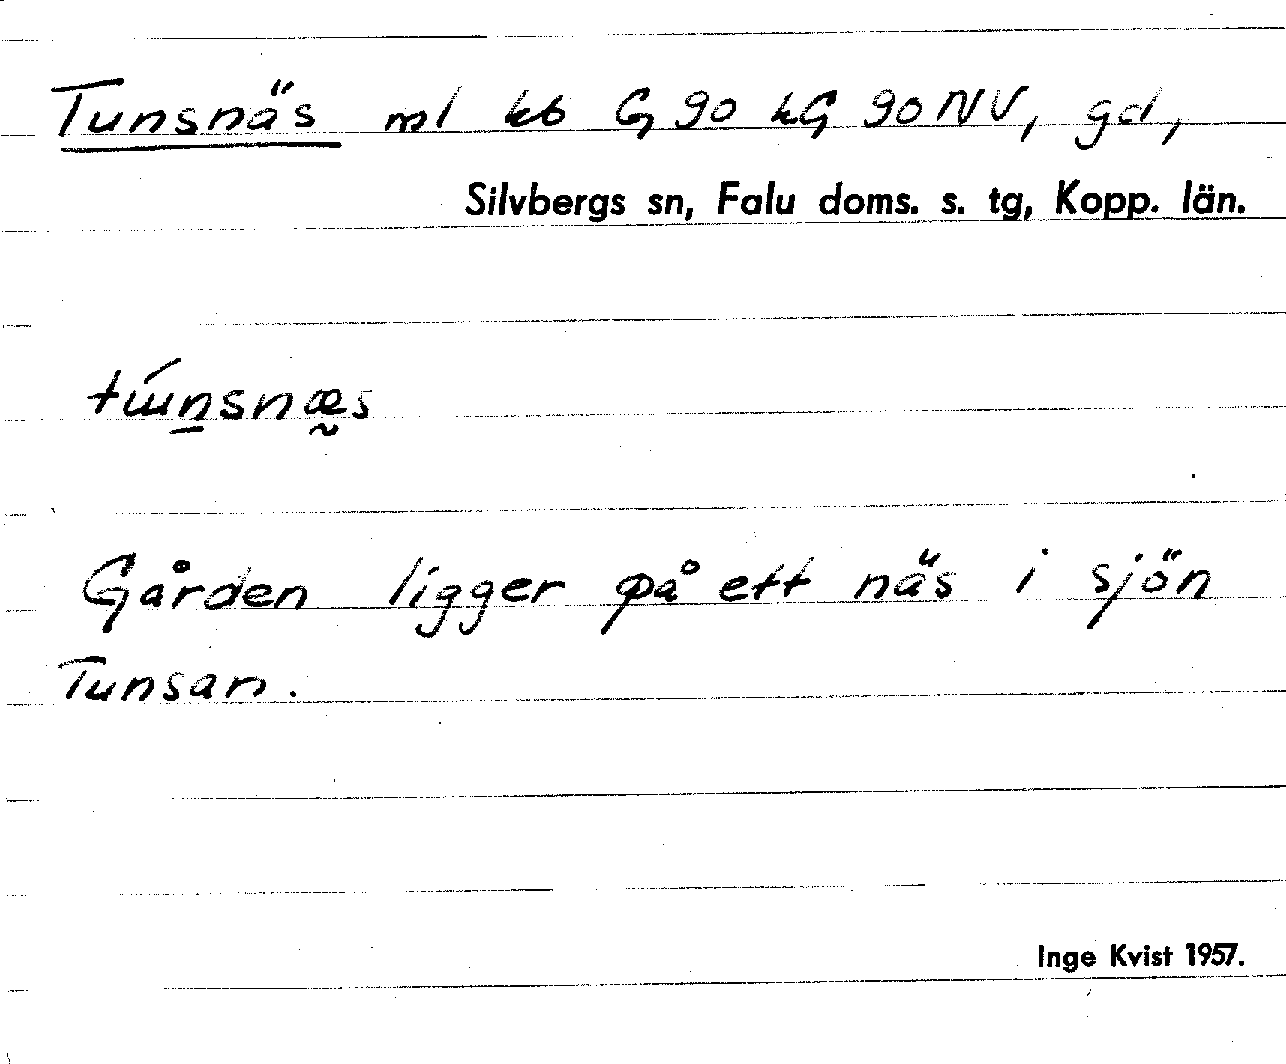 Tunsnäs ml kb G 90 kG 90 NV, gd,
Silvbergs sn, Falu doms. s. tg, Kopp. län.
Gården ligger på ett näs i sjön
Tunsan.
Inge Kvist 1957.